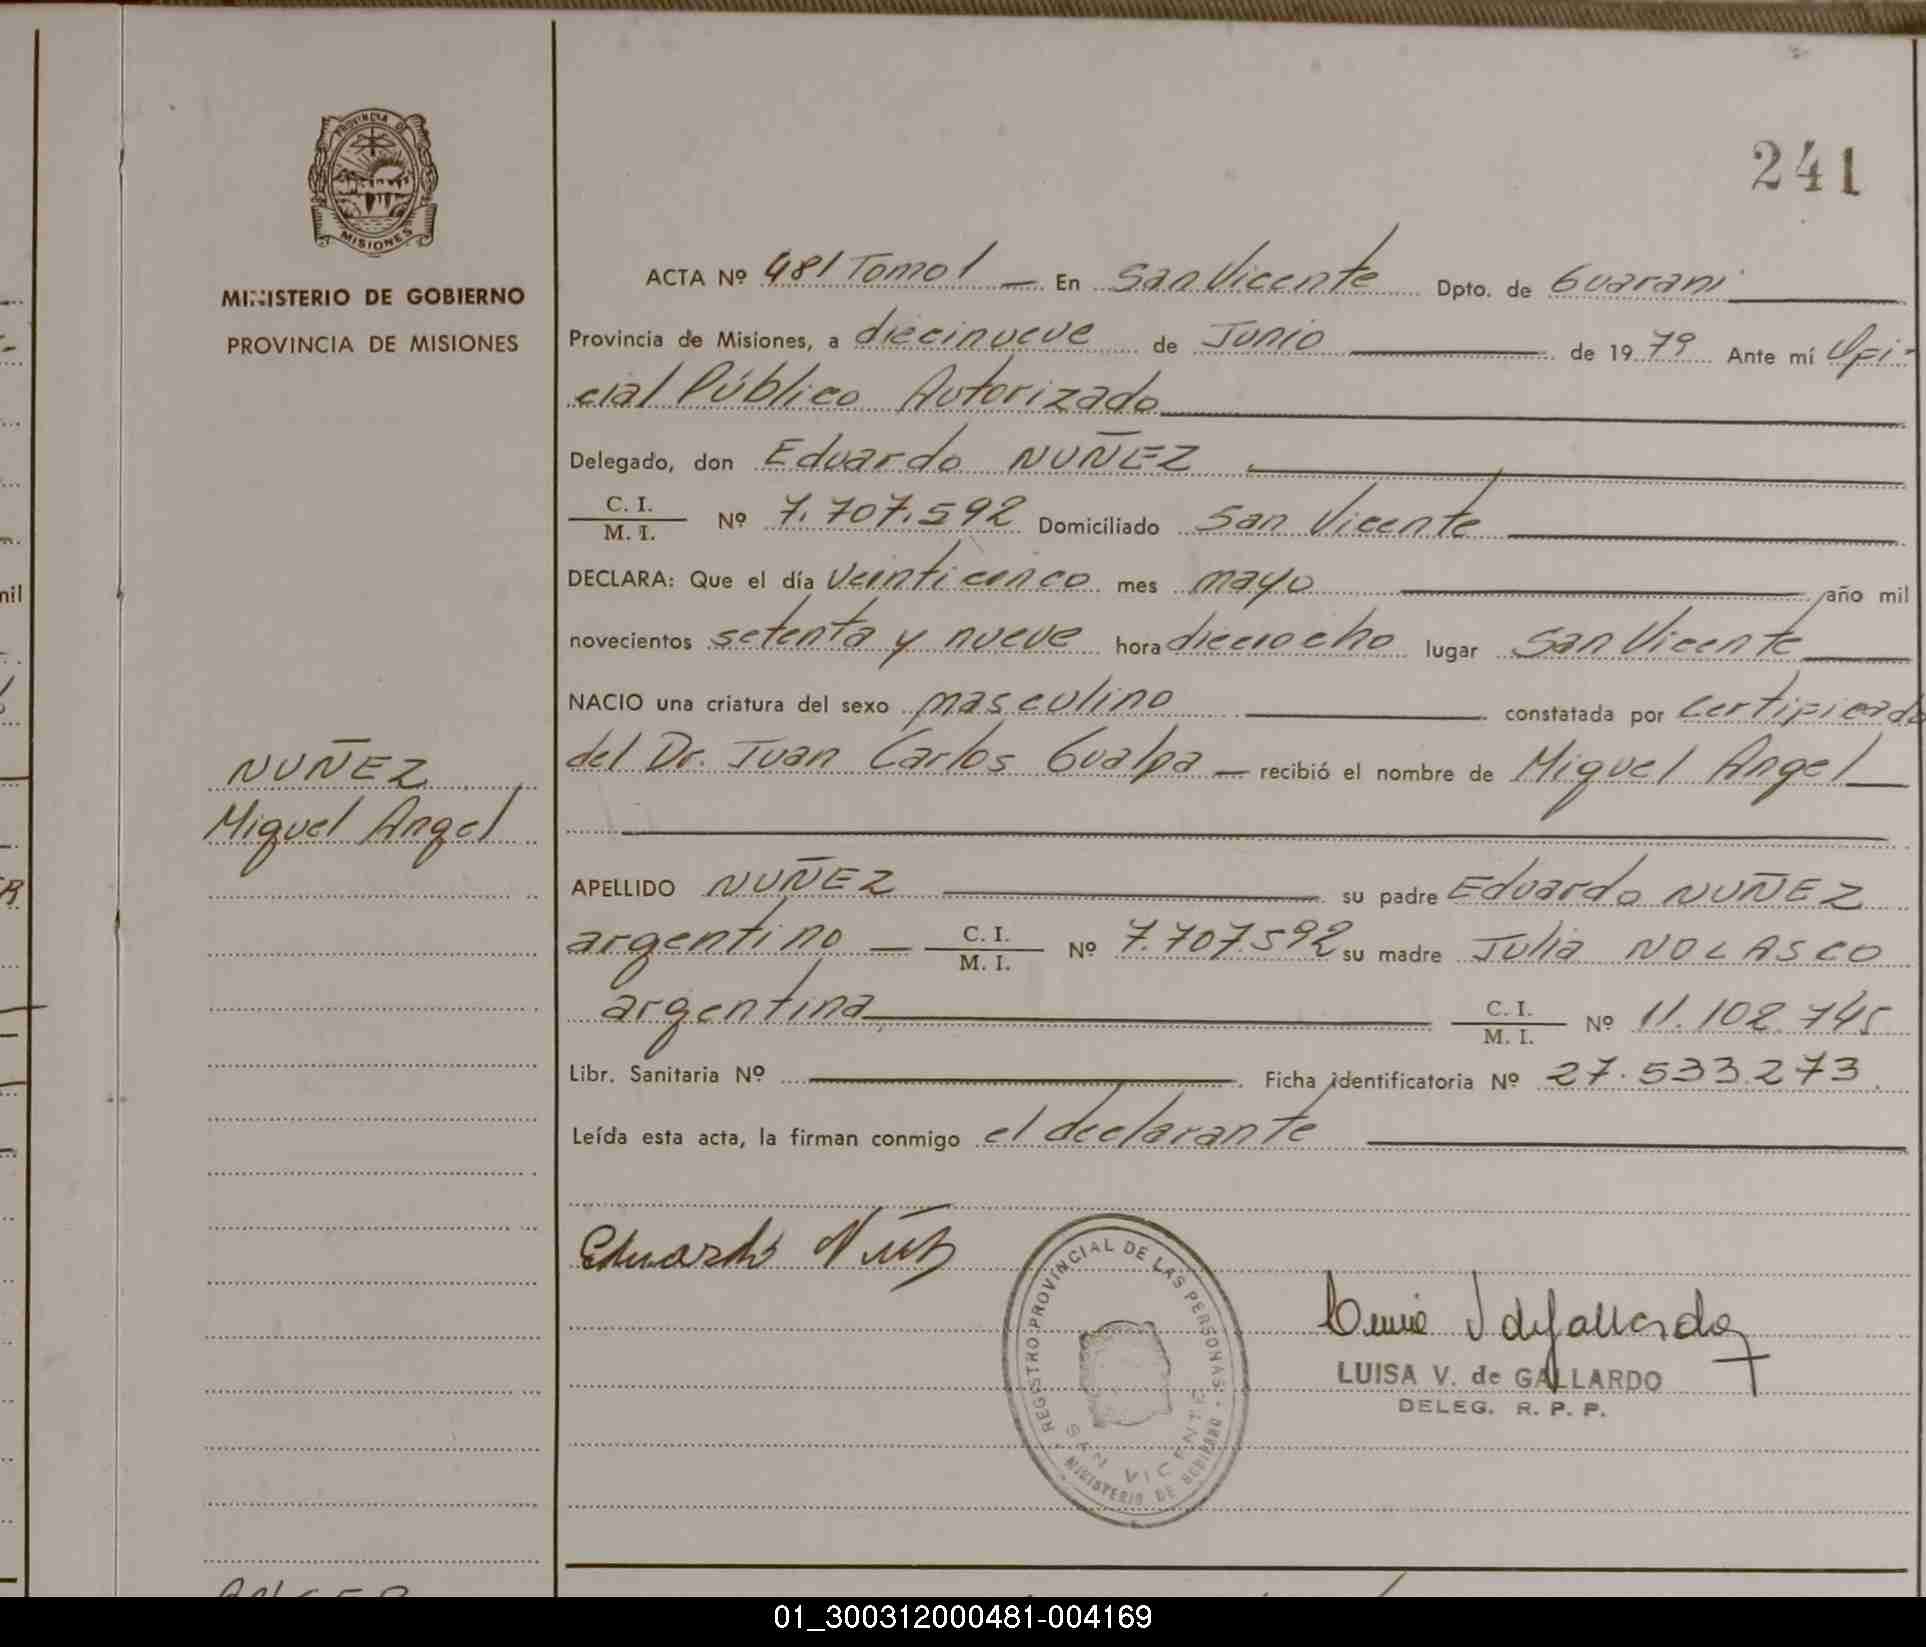 241
PROVINCIA DE
MISIONES
MINISTERIO DE GOBIERNO
PROVINCIA DE MISIONES
NUÑEZ
Miguel Angel
ACTA Nº 481 Tomo I — En San Vicente Dpto. de Guarani
Provincia de Misiones, a diecinueve de Junio de 1979 Ante mí Ofi-
cial Público Autorizado
Delegado, don Eduardo NUÑEZ
C. I.
M. I. Nº 7.707.592 Domiciliado San Vicente
DECLARA: Que el día veinticinco mes mayo año mil
novecientos setenta y nueve hora dieciocho lugar San Vicente
NACIO una criatura del sexo masculino constatada por certificado
del Dr. Juan Carlos Gualpa — recibió el nombre de Miguel Angel
APELLIDO NUÑEZ su padre Eduardo NUÑEZ
argentino — C. I.
M. I. Nº 7.707.592 su madre Julia NOLASCO
argentina C. I.
M. I. Nº 11.102.745
Libr. Sanitaria Nº Ficha identificatoria Nº 27.533.273
Leída esta acta, la firman conmigo el declarante
Eduardo Núñez
REGISTRO PROVINCIAL DE LAS PERSONAS
SAN VICENTE
MINISTERIO DE GOBIERNO
LUISA V. de GALLARDO
DELEG. R. P. P.
01_300312000481-004169